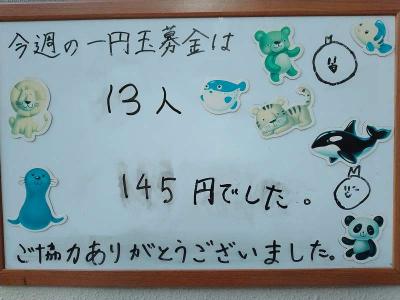 今週の一円玉募金は
13人
145円でした。
ご協力ありがとうございました。